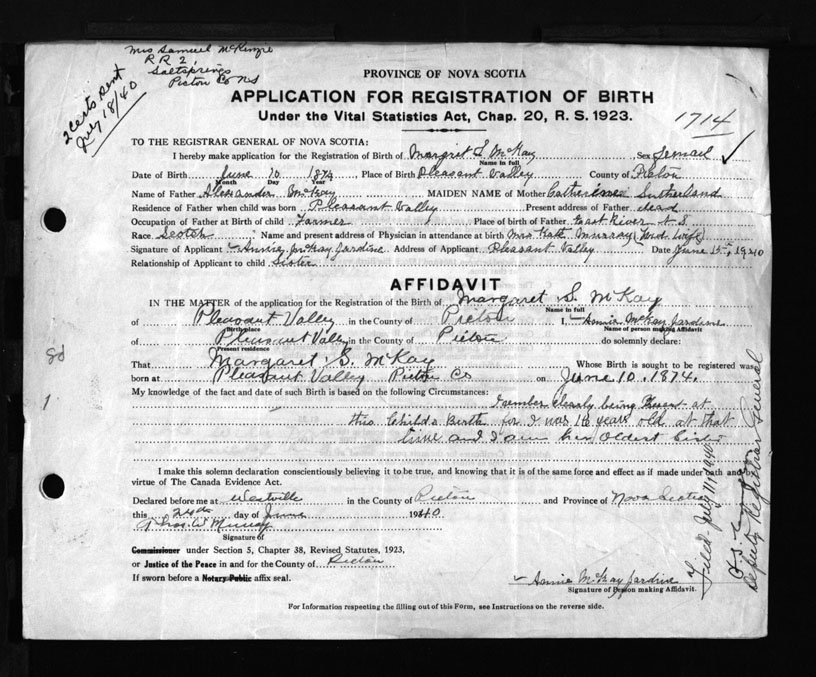 Mrs Samuel McKenzie
R R 2,
Saltsprings
Pictou Co NS
2 Certs sent
July 18/40
PROVINCE OF NOVA SCOTIA
APPLICATION FOR REGISTRATION OF BIRTH
Under the Vital Statistics Act, Chap. 20, R. S. 1923.
1714
TO THE REGISTRAR GENERAL OF NOVA SCOTIA:
I hereby make application for the Registration of Birth of Margret S McKay Sex Femail
Name in full
Date of Birth June 10 1874 Place of Birth Pleasant Valley County of Pictou
Month Day Year
Name of Father Alexander McKay MAIDEN NAME of Mother Catherine Sutherland
Residence of Father when child was born Pleasant Valley Present address of Father dead
Occupation of Father at Birth of child Farmer Place of birth of Father East River N S
Race Scotch Name and present address of Physician in attendance at birth Mrs Kate Murray (mid wife)
Signature of Applicant Annie McKay Jardine Address of Applicant Pleasant Valley Date June 15th, 1940
Relationship of Applicant to child Sister
AFFIDAVIT
IN THE MATTER of the application for the Registration of the Birth of Margaret S. McKay
Name in full
of Pleasant Valley in the County of Pictou I, Annie McKay Jardine
Birth place Name of person making Affidavit
of Pleasant Valley in the County of Pictou do solemnly declare:
Present residence
That Margaret S. McKay Whose Birth is sought to be registered was
born at Pleasant Valley Pictou Co on June 10. 1874.
My knowledge of the fact and date of such Birth is based on the following Circumstances:
I rember clearly being Present at
this Childs Birth for I was 16 years old at that
time and I am her oldest Sister
I make this solemn declaration conscientiously believing it to be true, and knowing that it is of the same force and effect as if made under oath and by
virtue of The Canada Evidence Act.
Declared before me at Westville in the County of Pictou and Province of Nova Scotia
this day of June 1940.
Thos. W Murray
Signature of
Commissioner under Section 5, Chapter 38, Revised Statutes, 1923,
or Justice of the Peace in and for the County of Pictou
If sworn before a Notary Public affix seal.
Annie McKay Jardine
Signature of Person making Affidavit.
For Information respecting the filling out of this Form, see Instructions on the reverse side.
Filed July 11, 1940
Deputy Registrar General